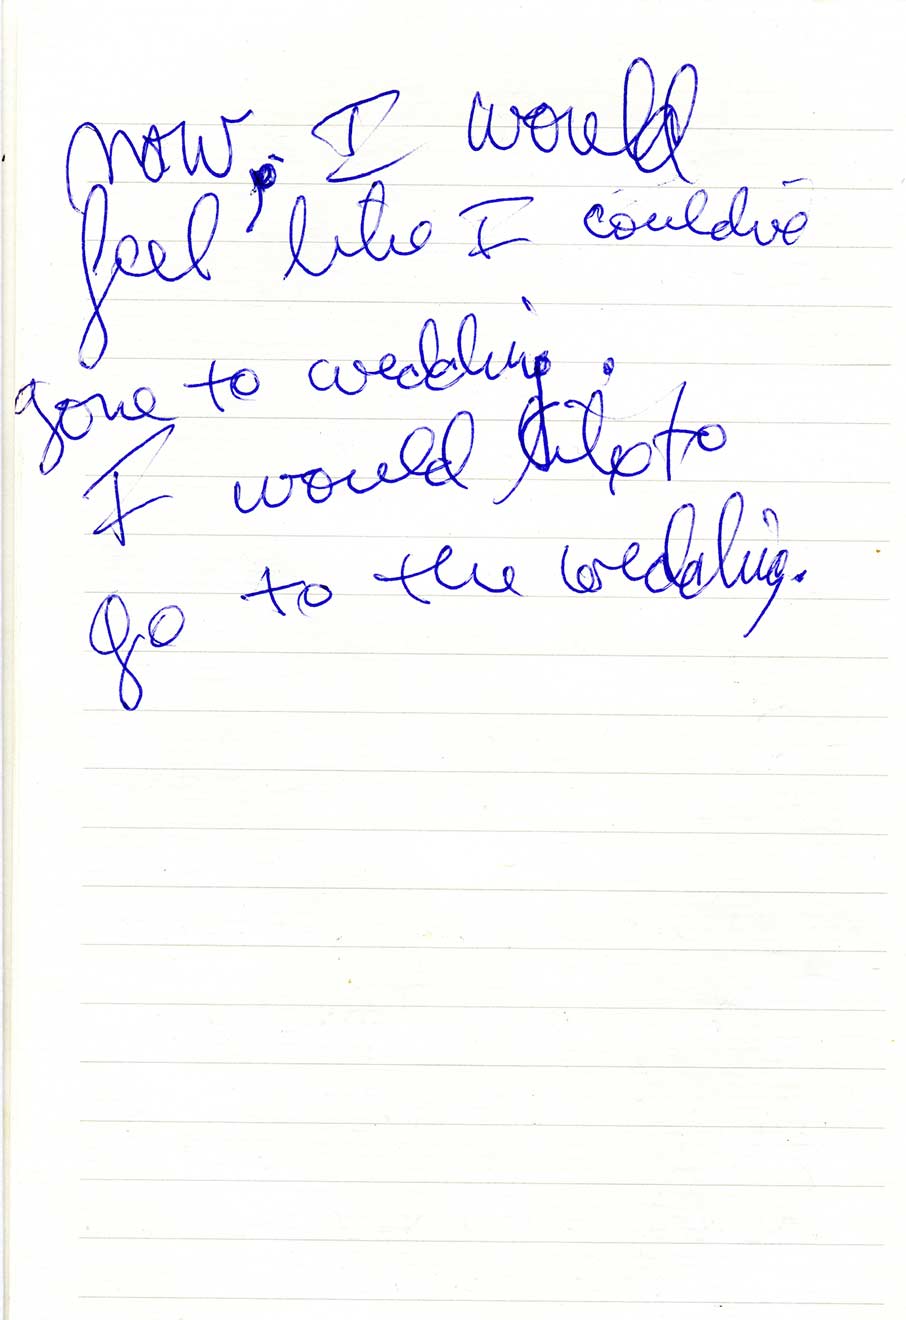 now, I would
feel like I could've
gone to wedding.
I would like to
go to the wedding.